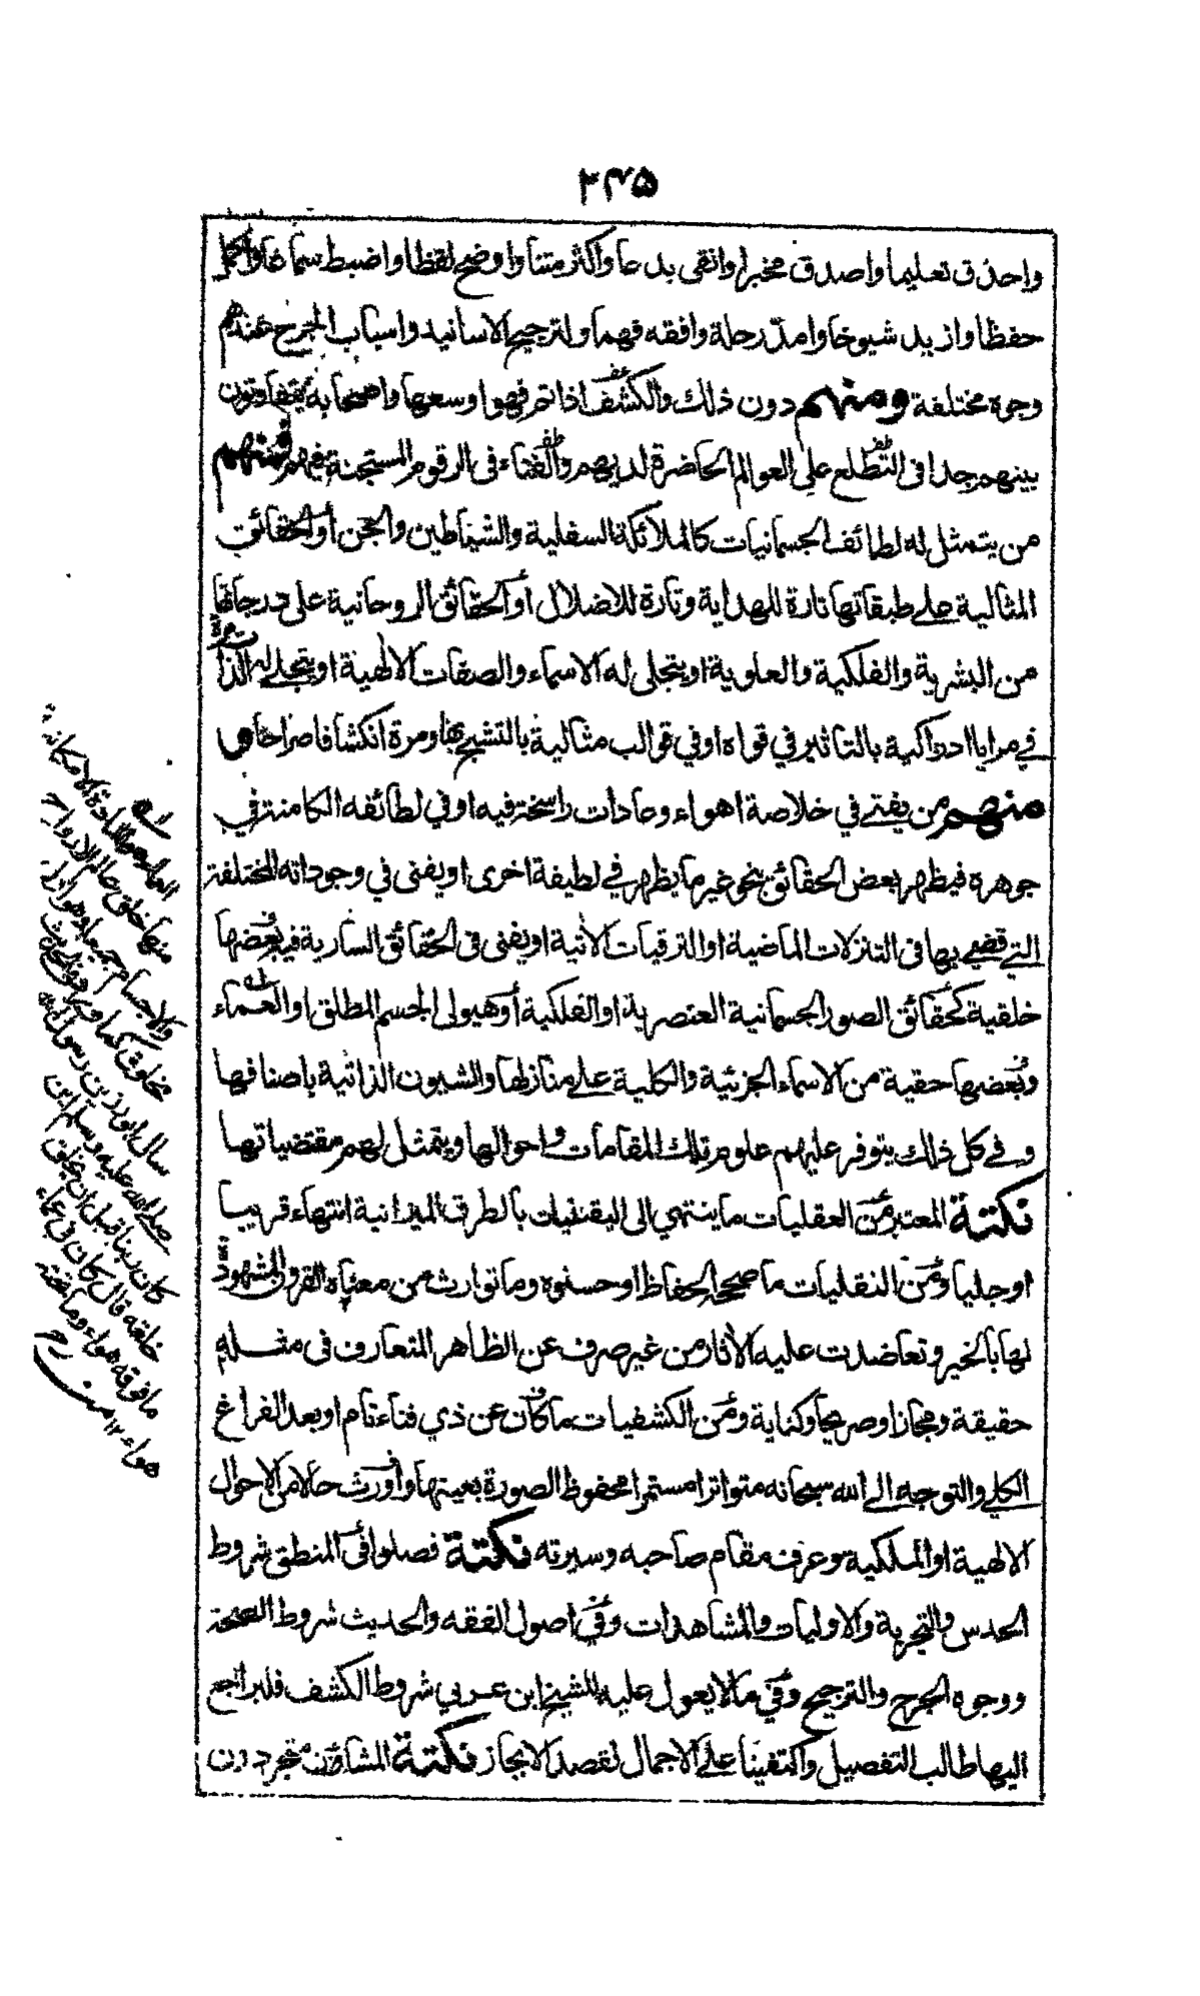 ۲۴۵
واحذق تعليما واصدق مخبرا وانقى بدعا واكثر متنا واوضح لفظا واضبط سماعا واكمل
حفظا وازيد شيوخا وامدّ رحلة وافقه فهما ولترجيح الاسانيد واسباب الجرح عندهم
وجوه مختلفة ومنهم دون ذلك والكشف اذا تم فهو اوسعها واصحابه يتفاوتون
بينهم جدا فى التطلع على العوالم الحاضرة لديهم والفناء فى الرقوم المستجنة فيهم فمنهم
من يتمثل له لطائف الجسمانيات كالملائكة السفلية والشياطين والجن أو الحقائق
المثالية على طبقاتها تارة للهداية وتارة للاضلال أو الحقائق الروحانية على درجاتها
من البشرية والفلكية والعلوية او يتجلى له الاسماء والصفات الالهية او يتجلى له الذات
في مرايا ادراكية بالتاثير في قواه او في قوالب مثالية بالتشبح بها ومرة انكشافا صراحا و
منهم من يفنى في خلاصة اهواء وعادات راسخة فيه او في لطائفه الكامنة في
جوهره فيظهر بعض الحقائق بنحو غير ما يظهر في لطيفة اخرى او يفنى في وجوداته المختلفة
التي قضي بها فى التنزلات الماضية او الترقيات الأتية او يفنى فى الحقائق السارية فيه بعضها
خلقية كحقائق الصور الجسمانية العنصرية او الفلكية أو هيولى الجسم المطلق او العماء
وبعضها حقية من الاسماء الجزئية والكلية على منازلها والشيون الذاتية باصنافها
وفي كل ذلك يتوفر عليهم علوم تلك المقامات واحوالها ويتمثل لهم مقتضياتها
نكتة المعتبر من العقليات ما ينتهي الى اليقينيات بالطرق الميزانية انتهاء قريبا
او جليا ومن النقليات ما صححه الحفاظ او حسنوه وما توارث من القرون المشهود
لها بالخير وتعاضدت عليه الأثار من غير صرف عن الظاهر المتعارف فى مثله
حقيقة ومجازا وصريحا وكناية ومن الكشفيات ما كان عن ذي فناء تام او بعد الفراغ
الكلي والتوجه الى الله سبحانه متواترا مستمرا محفوظ الصورة بعينها واورث حالا من الاحوال
الالهية او الملكية وعرف مقام صاحبه وسيرته نكتة فصلوا فى المنطق شروط
الحدس والتجربة والاوليات والمشاهدات وفي اصول الفقه والحديث شروط الصحة
ووجوه الجرح والترجيح وفي ما لا يعول عليه للشيخ ابن عربي شروط الكشف فليراجع
اليها طالب التفصيل واكتفينا على الاجمال لقصد الايجاز نكتة المشاؤن متجردون
العماء هو المادة الامكانية
منها خلق عالم الارواح
والاجسام جميعا
مخلوق كما
سال ابو رزين رسول الله
صلى الله عليه وسلم اين
كان ربنا قبل ان يخلق
خلقه قال كان فى عماء
ما فوقه هواء وما تحته
هواء ۱۲ منه رح